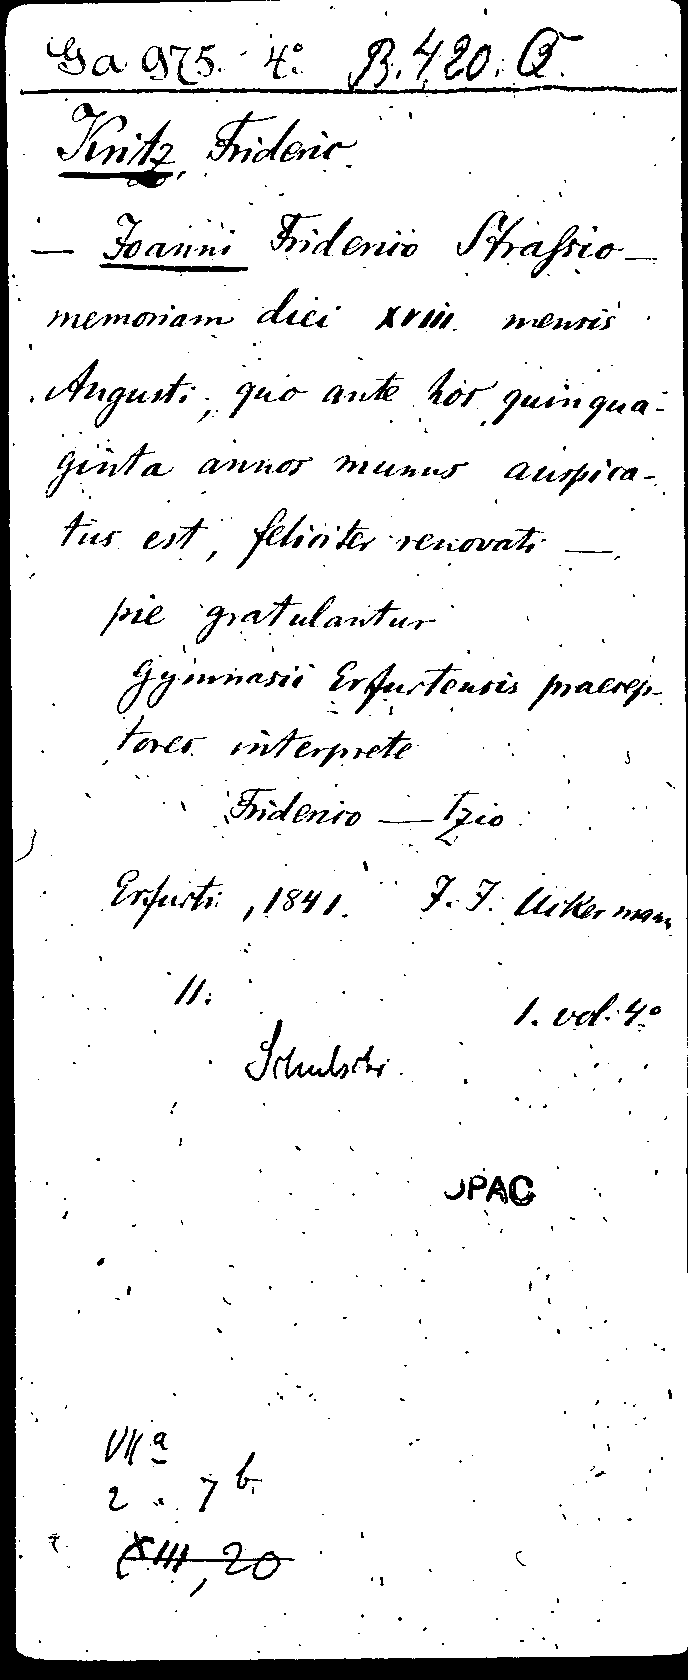 Ga 975. 4° B. 420. Q.
Kritz, Frideric.
— Joanni Friderico Strassio —
memoriam diei XVIII. mensis
Augusti, quo ante hos quinqua-
ginta annos munus auspica-
tus est, feliciter renovati —
pie gratulantur
Gymnasii Erfurtensis praecep-
tores interprete
Friderico — tzio
Erfurti, 1841. F. F. Uckermann
11.
1. vol. 4°
OPAC
VII a
2. 7 b.
XIII, 20